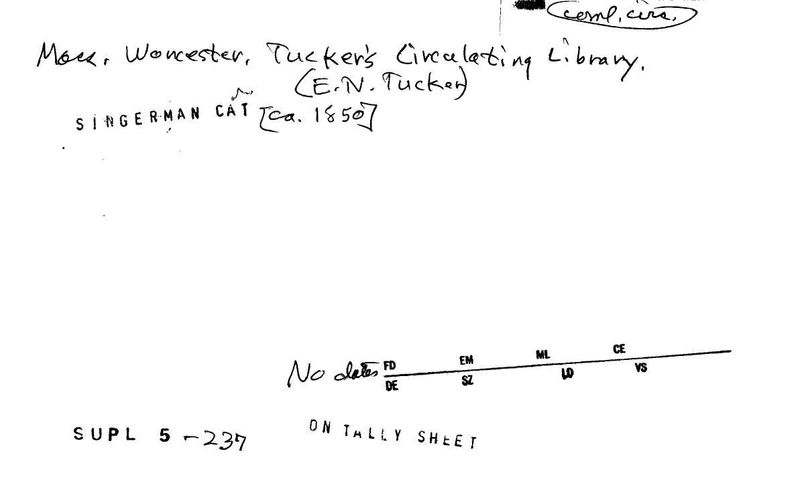 coml. circ.
Mass. Worcester. Tucker's Circulating Library.
(E.N. Tucker)
SINGERMAN CAT [ca. 1850]
No dates FD EM ML CE
DE SZ LO VS
SUPL 5 - 237
ON TALLY SHEET